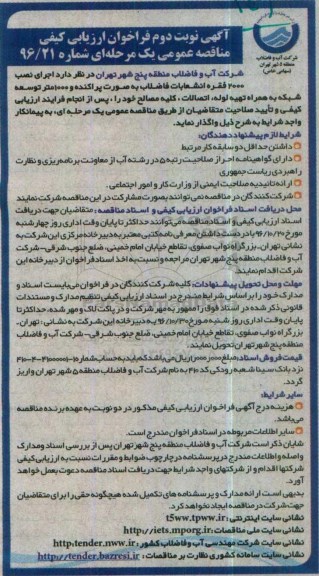 آگهی نوبت دوم فراخوان ارزیابی کیفی
مناقصه عمومی یک مرحله‌ای شماره ۹۶/۲۱
شرکت آب و فاضلاب
منطقه ۵ شهر تهران
(سهامی خاص)
شرکت آب و فاضلاب منطقه پنج شهر تهران در نظر دارد اجرای نصب
۲۰۰۰ فقره انشعابات فاضلاب به صورت پراکنده و ۱۰۰۰ متر توسعه
شبکه به همراه تهیه لوله، اتصالات، کلیه مصالح خود را، پس از انجام فرایند ارزیابی
کیفی و تأیید صلاحیت متقاضیان از طریق مناقصه عمومی یک مرحله ای، به پیمانکار
واجد شرایط به شرح ذیل واگذار نماید.
شرایط لازم پیشنهاد دهندگان:
داشتن حداقل دو سابقه کار مرتبط
دارای گواهینامه احراز صلاحیت رتبه ۵ در رشته آب از معاونت برنامه‌ریزی و نظارت
راهبردی ریاست جمهوری
ارائه تائیدیه صلاحیت ایمنی از وزارت کار و امور اجتماعی.
شرکت کنندگان در مناقصه نمی‌توانند بصورت مشارکت در این مناقصه شرکت نمایند
محل دریافت اسناد فراخوان ارزیابی کیفی و اسناد مناقصه: متقاضیان جهت دریافت
اسناد ارزیابی کیفی و اسناد مناقصه می توانند حداکثر تا پایان وقت اداری روز چهارشنبه
مورخ ۹۶/۱۰/۲۰ با در دست داشتن معرفی نامه کتبی معتبر به دبیرخانه مرکزی این شرکت به
نشانی تهران، بزرگراه نواب صفوی، تقاطع خیابان امام خمینی، ضلع جنوب شرقی- شرکت
آب و فاضلاب منطقه پنج شهر تهران مراجعه و نسبت به اخذ اسناد فراخوان از دبیرخانه این
شرکت اقدام نمایند.
مهلت و محل تحویل پیشنهادات: کلیه شرکت کنندگان در فراخوان می‌بایست اسناد و
مدارک خود را بر اساس شرایط مندرج در اسناد ارزیابی کیفی تنظیم مدارک و مستندات
قانونی ذکر شده در اسناد فوق را ممهور به مهر شرکت و در پاکت لاک و مهر شده، حداکثر تا
پایان وقت اداری روز شنبه مورخ ۹۶/۱۰/۳۰ به دبیرخانه این شرکت به نشانی: تهران،
بزرگراه نواب صفوی، تقاطع خیابان امام خمینی، ضلع جنوب شرقی- شرکت آب و فاضلاب
منطقه پنج شهر تهران تحویل نمایند.
قیمت فروش اسناد: مبلغ ۱/۰۰۰/۰۰۰ ریال می باشد که باید به حساب شماره
نزد بانک سینا شعبه رودکی کد ۴۱۰ به نام شرکت آب و فاضلاب منطقه ۵ شهر تهران واریز
گردد.
سایر شرایط:
هزینه درج آگهی فراخوان ارزیابی کیفی مذکور در دو نوبت به عهده برنده مناقصه
می‌باشد.
سایر اطلاعات مربوطه در اسناد فراخوان مندرج است.
شایان ذکر است شرکت آب و فاضلاب منطقه پنج شهر تهران پس از بررسی اسناد و مدارک
واصله و اطلاعات مندرج در پرسشنامه در چارچوب ضوابط و مقررات نسبت به ارزیابی کیفی
شرکتها اقدام و از شرکتهای واجد شرایط جهت دریافت اسناد مناقصه دعوت بعمل خواهد
آورد.
بدیهی است ارائه مدارک و پرسشنامه های تکمیل شده هیچگونه حقی را برای متقاضیان
جهت شرکت در مناقصه ایجاد نخواهد کرد.
نشانی سایت اینترنتی: t5ww.tpww.ir
نشانی سایت ملی مناقصات: http://iets.mporg.ir
نشانی سایت شرکت مهندسی آب و فاضلاب کشور: http:tender.nww.ir
نشانی سایت سامانه کشوری نظارت بر مناقصات: http://tender.bazresi.ir